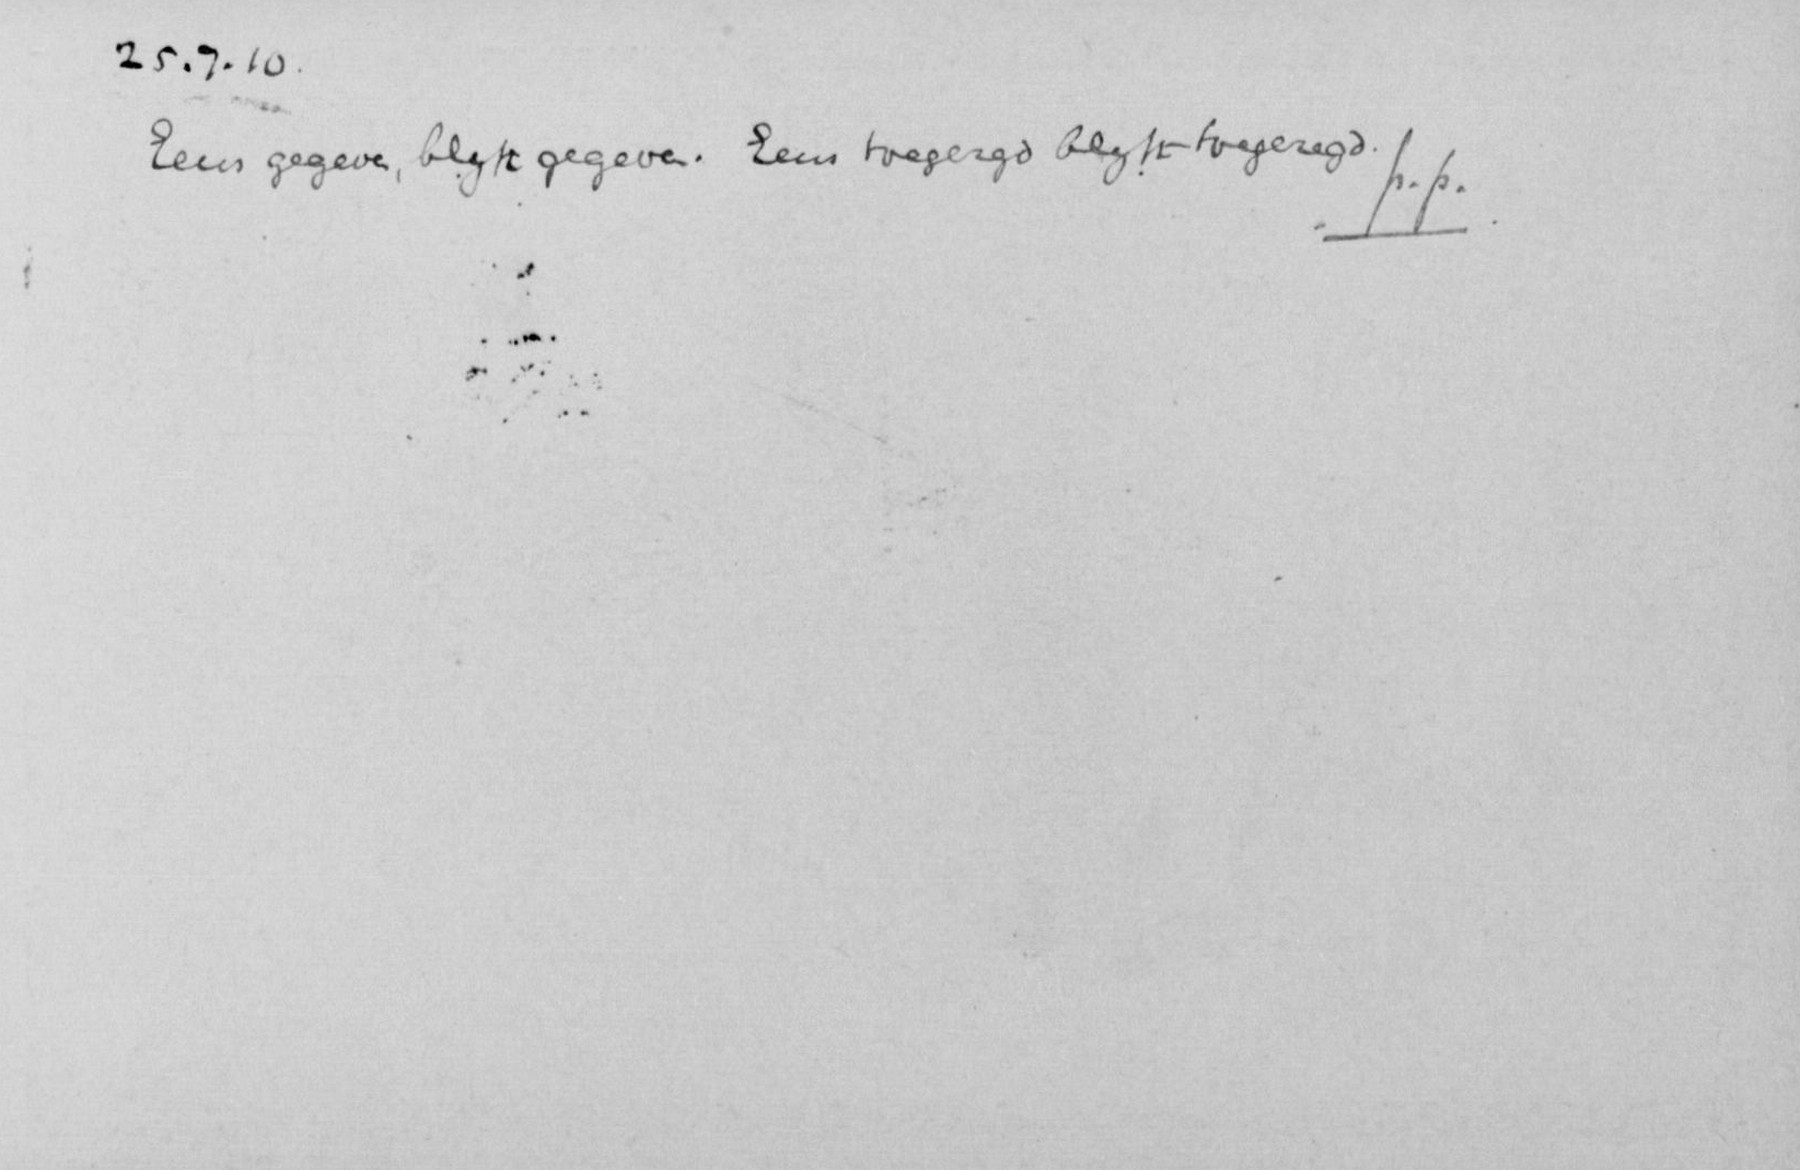 25.7.10.
Eens gegeven, blyft gegeven. Eens toegezegd blyft toegezegd.
p.p.